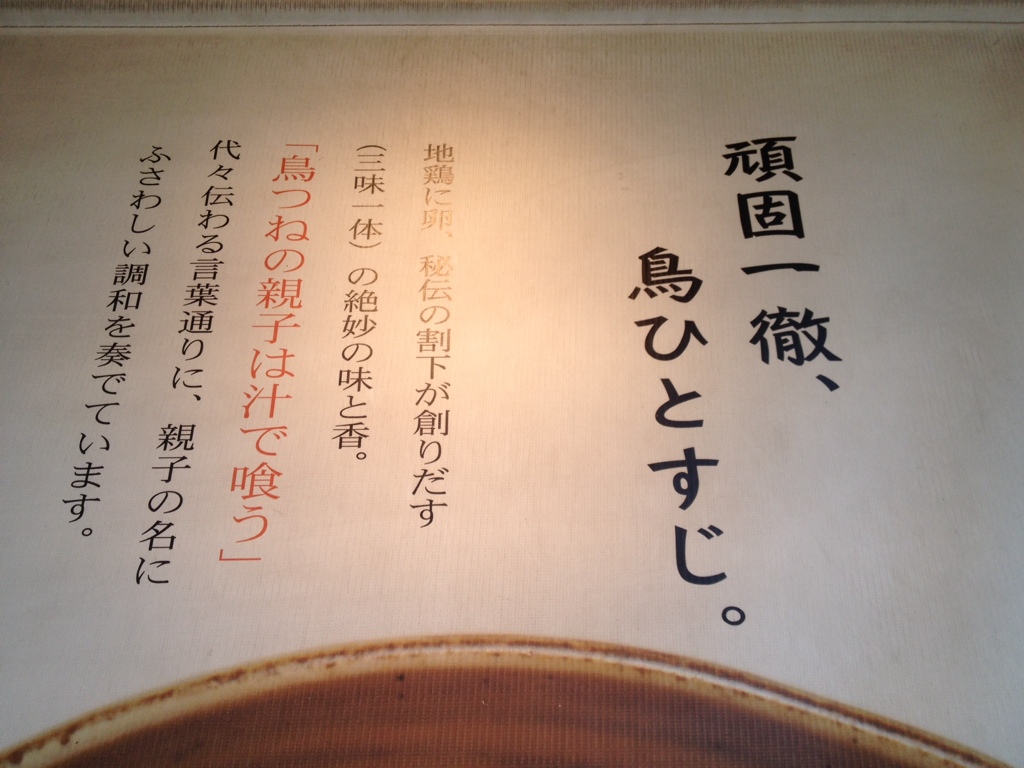 頑固一徹、
鳥ひとすじ。
地鶏に卵、秘伝の割下が創りだす
（三味一体）の絶妙の味と香。
「鳥つねの親子は汁で喰う」
代々伝わる言葉通りに、親子の名に
ふさわしい調和を奏でています。